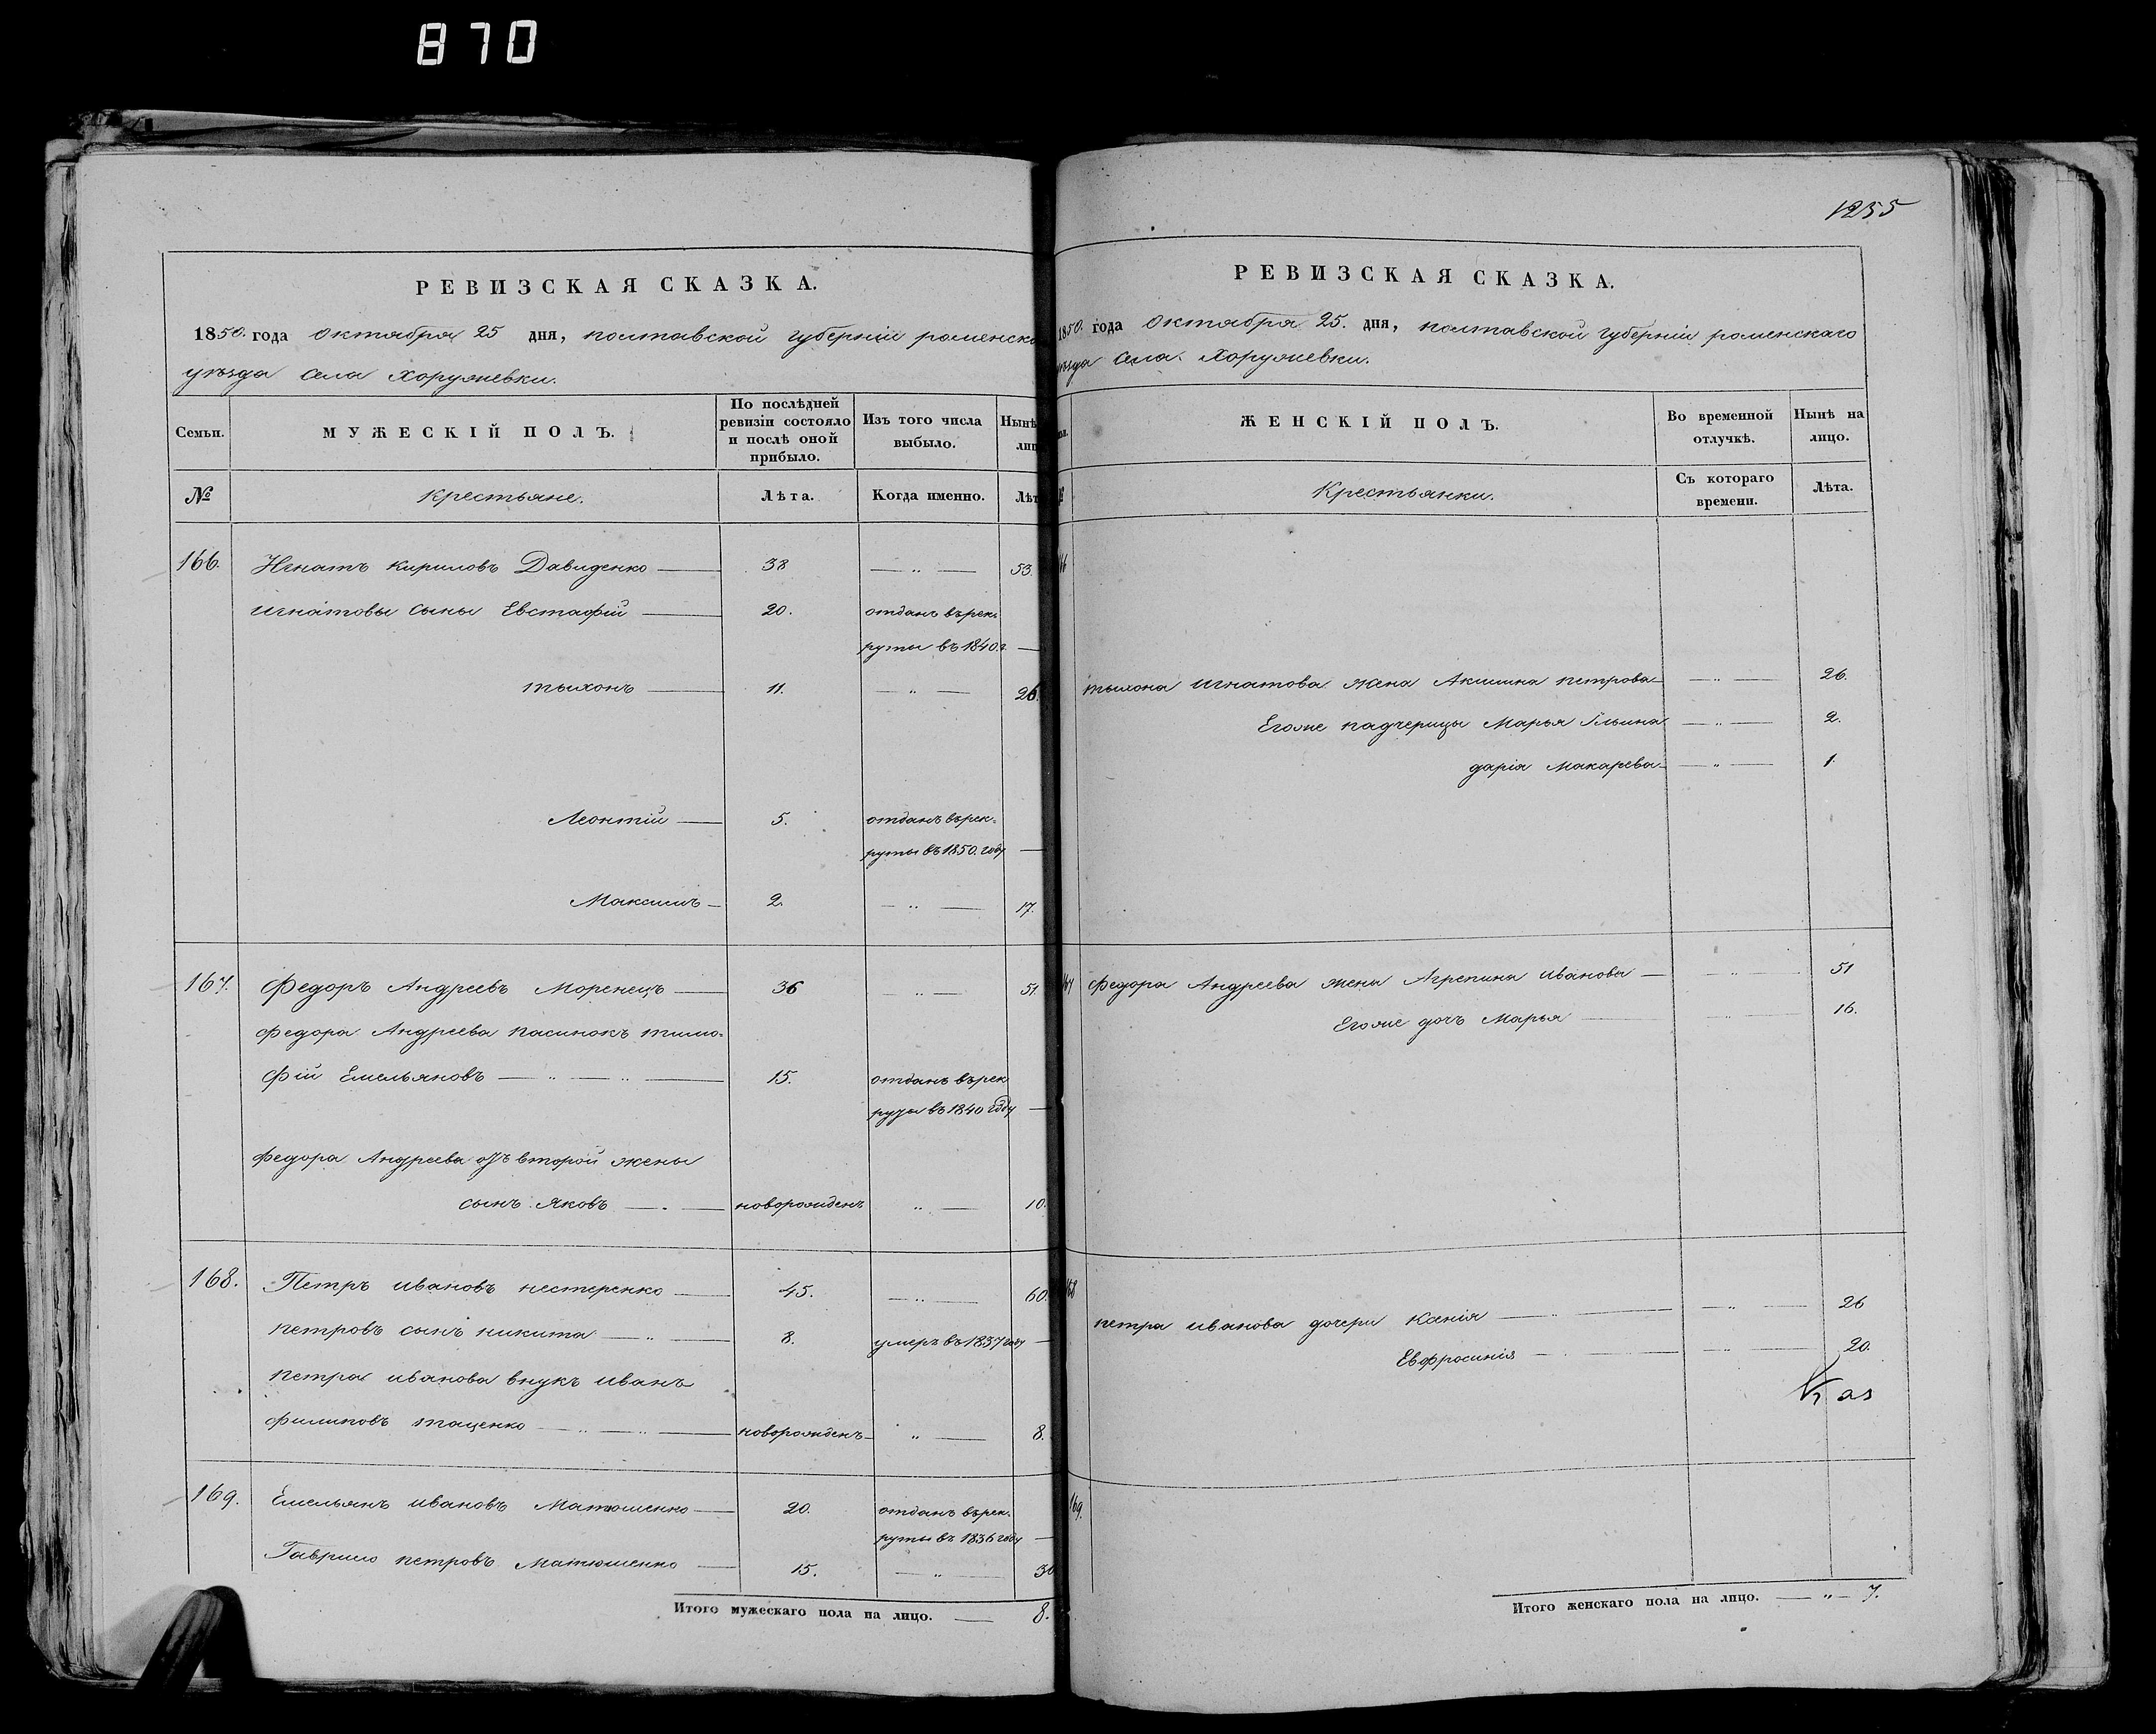 870
РЕВИЗСКАЯ СКАЗКА.
1850. года октября 25 дня, полтавской губерніи роменска
уѣзда села Хоружевки.
Семьи.
МУЖЕСКІЙ ПОЛЪ.
По послѣдней ревизіи состояло и послѣ оной прибыло.
Изъ того числа выбыло.
Нынѣ лиц
№
Крестьяне.
Лѣта.
Когда именно.
Лѣт
166. Игнатъ Кириловъ Давиденко — 38 — „ — 53.
Игнатовы сыны Евстафій — 20. отданъ врек=
руты въ 1840.г. —
тыхонъ — 11. — „ — 26.
Леонтій — 5. отданъ врек=
руты въ 1850. году —
Максимъ — 2. — „ — 17.
167. Федоръ Андреевъ Моренецъ — 36 — „ — 51.
Федора Андреева пасинокъ тимо=
фій Емельяновъ — „ — „ — 15. отданъ врек
руты въ 1840 году —
Федора Андреева отъ второй жены
сынъ Яковъ — новорожденъ „ — 10.
168. Петръ ивановъ нестеренко — 45. — „ — 60.
петровъ сынъ никита — „ — 8. умеръ въ 1837 году —
петра иванова внукъ иванъ
филиповъ таценко — „ — „ — новорожденъ — „ — 8.
169. Емельянъ ивановъ Матюшенко — 20. отданъ врек=
руты въ 1836 году —
Гаврило петровъ Матюшенко — 15. — „ — 30
Итого мужескаго пола на лицо. — 8.
1255
РЕВИЗСКАЯ СКАЗКА.
1850. года октября 25. дня, полтавской губерніи роменскаго
уѣзда села Хоружевки.
ЖЕНСКІЙ ПОЛЪ.
Во временной отлучкѣ.
Нынѣ на лицо.
Крестьянки.
Съ котораго времени.
Лѣта.
66
тыхона Игнатова жена Акилина петрова — — „ — 26.
Егоже падчерицы Марья Ільина — „ — 2.
дарія Макарева — — „ — 1.
167 Федора Андреева жена Агрепина иванова — — „ — 51
Егоже дочъ Марья — — „ — 16.
168
петра иванова дочери Ксенія — „ — — „ — 26
Евфросинія — — „ — 20.
169.
Итого женскаго пола на лицо. — „ — 7.